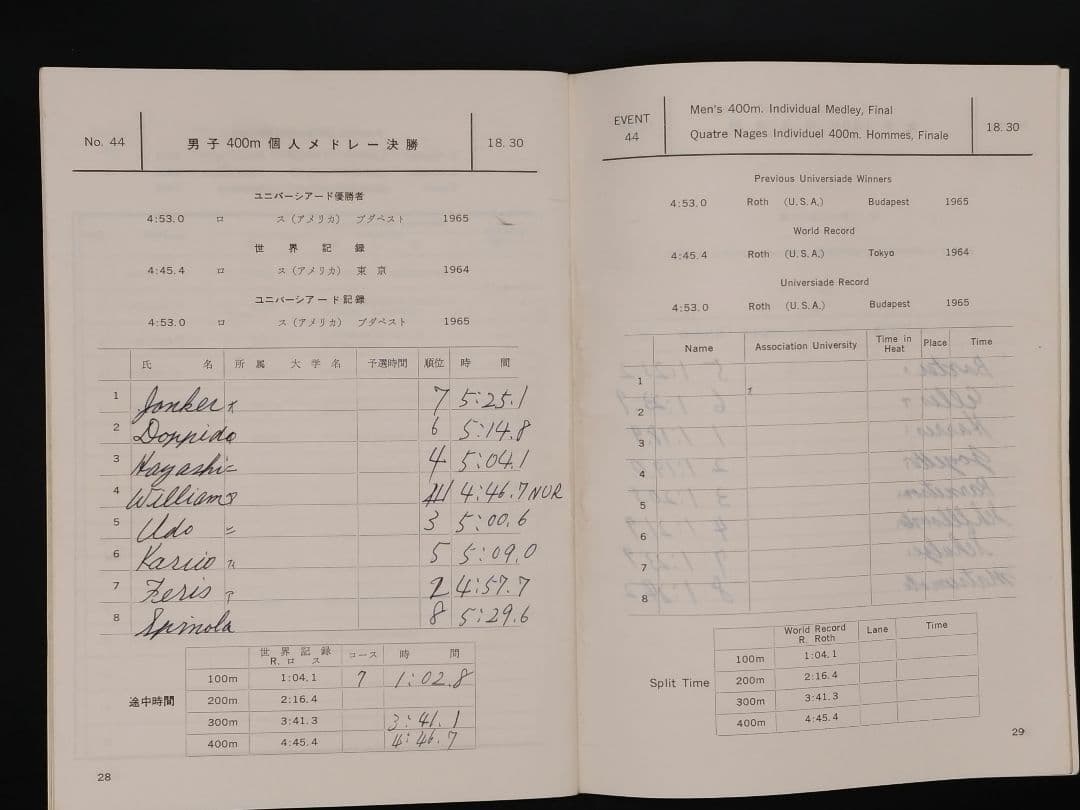 No. 44 男子 400m 個人メドレー決勝 18.30
ユニバーシアード優勝者
4:53.0 ロ ス (アメリカ) ブダペスト 1965
世 界 記 録
4:45.4 ロ ス (アメリカ) 東 京 1964
ユニバーシアード記録
4:53.0 ロ ス (アメリカ) ブダペスト 1965
氏 名 所 属 大 学 名 予選時間 順位 時 間
1 Jonker 7 5:25.1
2 Donpido 6 5:14.8
3 Hayashi 4 5:04.1
4 William 4:46.7 NUR
5 Udo 3 5:00.6
6 5 5:09.0
7 Feris 2 4:57.7
8 Spinola 8 5:29.6
世 界 記 録 R. ロ ス コース 時 間
途中時間
100m 1:04.1 7 1:02.8
200m 2:16.4
300m 3:41.3 3:41.1
400m 4:45.4 4:46.7
28
EVENT 44 Men's 400m. Individual Medley, Final 18.30
Quatre Nages Individuel 400m. Hommes, Finale
Previous Universiade Winners
4:53.0 Roth (U.S.A.) Budapest 1965
World Record
4:45.4 Roth (U.S.A.) Tokyo 1964
Universiade Record
4:53.0 Roth (U.S.A.) Budapest 1965
Name Association University Time in Heat Place Time
1
2
3
4
5
6
7
8
World Record R. Roth Lane Time
Split Time
100m 1:04.1
200m 2:16.4
300m 3:41.3
400m 4:45.4
29